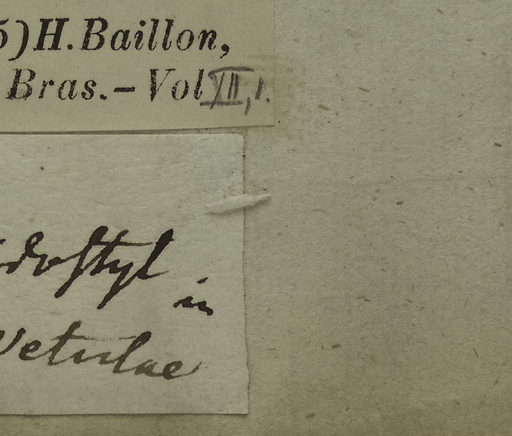 5)H.Baillon,
Bras.–Vol VII, 1.
idostyl
in
Vetulae